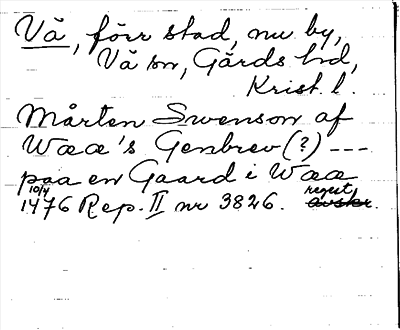 Vä, förr stad, nu by,
Vä sn, Gärds hd,
Krist. l.
Mårten Swenson af
Wææ's Genbrev (?) ---
paa en Gaard i Wææ
10/4 regest
1476 Rep. II nr 3826. avskr.